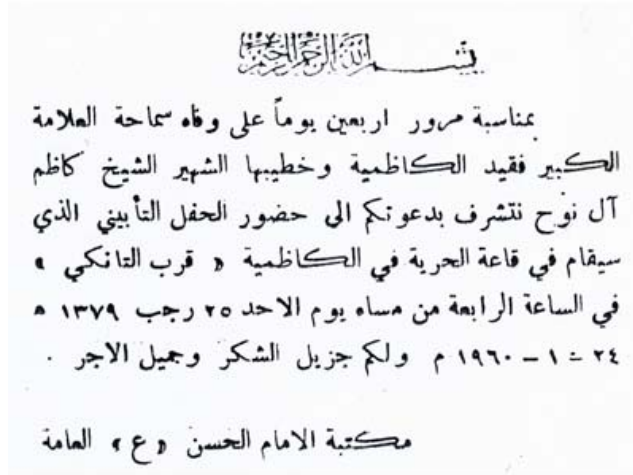 بسم الله الرحمن الرحيم
بمناسبة مرور اربعين يوماً على وفاه سماحة العلامة
الكبير فقيد الكاظمية وخطيبها الشهير الشيخ كاظم
آل نوح نتشرف بدعوتكم الى حضور الحفل التأبيني الذي
سيقام في قاعة الحرية في الكاظمية « قرب التانكي »
في الساعة الرابعة من مساء يوم الاحد ٢٥ رجب ١٣٧٩ ه
٢٤ - ١ - ١٩٦٠ م ولكم جزيل الشكر وجميل الاجر .
مكتبة الامام الحسن « ع » العامة